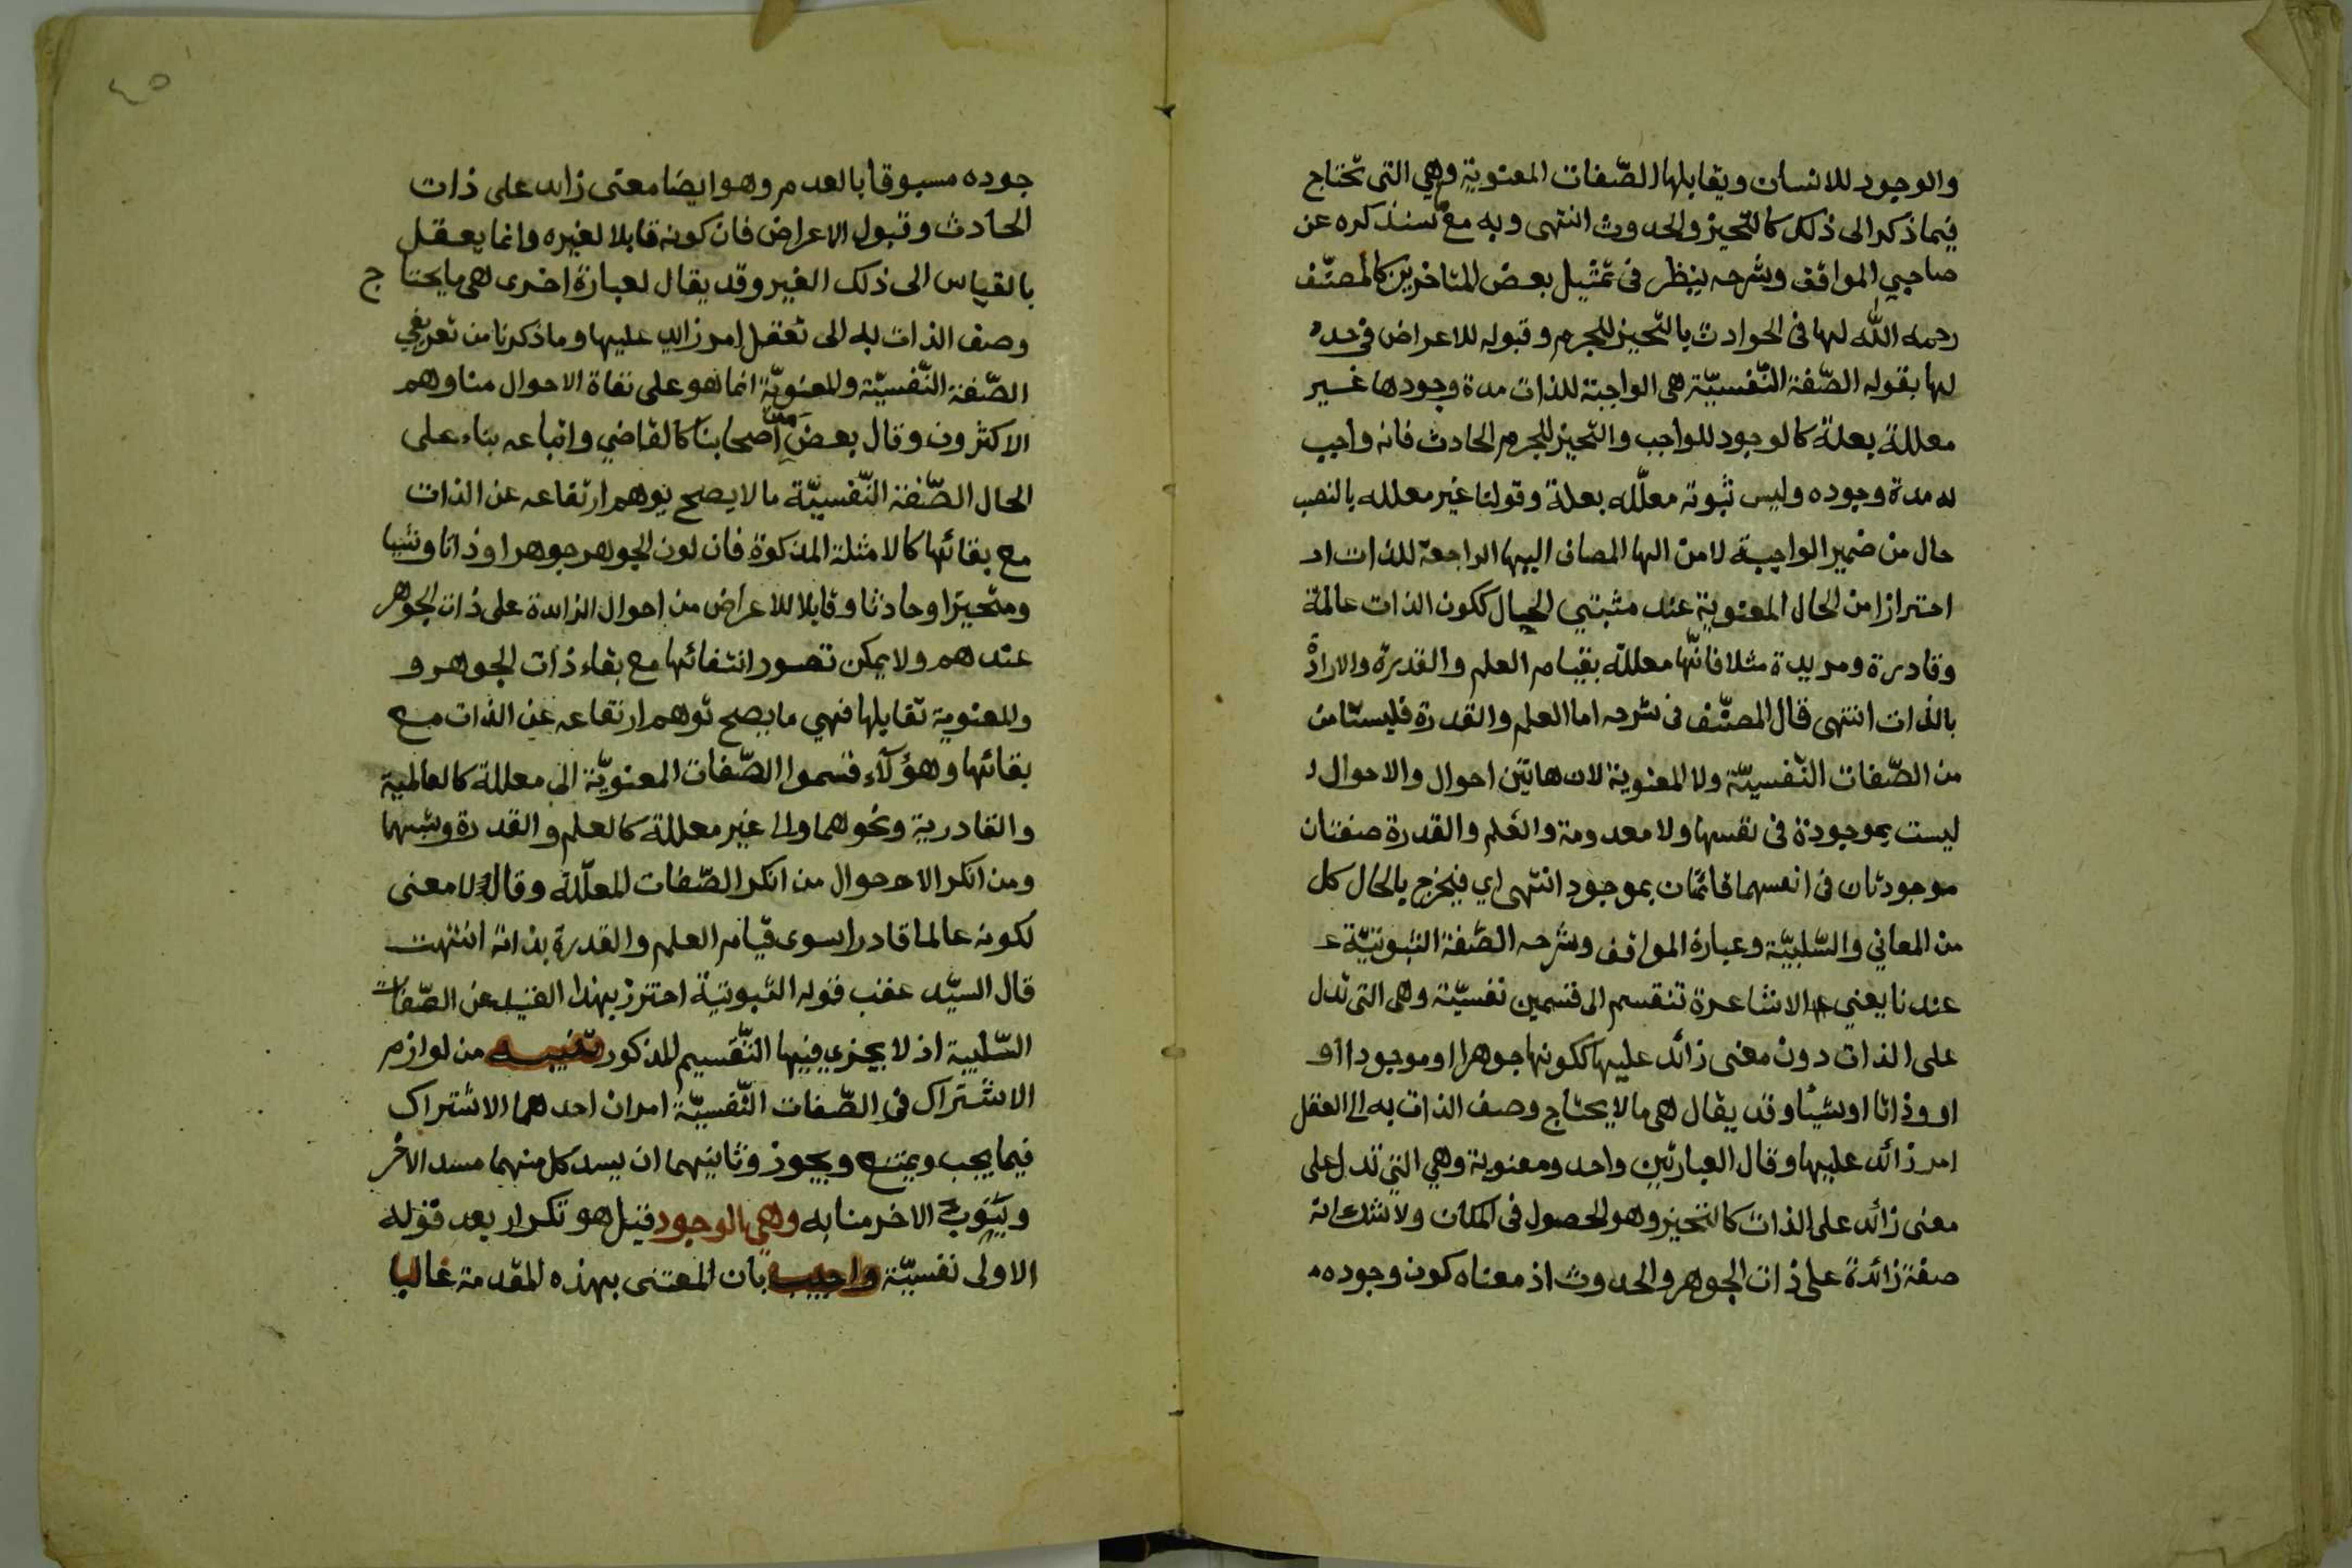 والوجود للانسان ويقابلها الصّفات المعنوية وهي التى تحتاج
فيما ذكر الى ذلك كالتحيز والحدوث انتهى وبه مع سنذكره عن
صاحبي المواقف وشرحه ينظر فى تمثيل بعض المتاخرين كالمصنّف
رحمه الله لها فى الحوادث بالتحيز للجرم وقبوله للاعراض فى حده
لها بقوله الصّفة النّفسيّة هى الواجبة للذات مدة وجودها غير
معللة بعلة كالوجود للواجب والتحيز للجرم الحادث فانه واجب
له مدة وجوده وليس ثبوته معلّله بعلة وقولنا غير معلله بالنصب
حال من ضمير الواجبة لا من الها المضاف اليها الراجعة للذات اد
احترازا من الحال المعنوية عند مثبتي الحال ككون الذات عالمة
وقادرة ومريدة مثلا فانّها معللة بقيام العلم والقدرة والارادة
بالذات انتهى قال المصنّف فى شرحه اما العلم والقدرة فليستا من
من الصّفات النّفسيّة ولا المعنوية لان هاتين احوال والاحوال ل
ليست بموجودة فى نفسها ولا معدومة والعلم والقدرة صفتان
موجودتان فى انفسهما قائمتان بموجود انتهى اي فيخرج بالحال كل
من المعاني والسّلبيّة وعبارة المواقف وشرحه الصّفة الثبوتيّة عـ
عندنا يعني الاشاعرة تنقسم الى قسمين نفسيّة وهى التى تدل
على الذات دون معنى زائد عليها ككونها جوهرا او موجودا او
او وذاتا او شيئا وقد يقال هى ما لا يحتاج وصف الذات به الى العقل
امر زائد عليها وقال العبارتين واحد ومعنوية وهي التي تدل على
معنى زائد على الذات كالتحيز وهو الحصول فى المكان ولا شك انه
صفة زائدة على ذات الجوهر والحدوث اذ معناه كون وجوده م
٤٥
جوده مسبوقا بالعدم وهو ايضا معنى زائد على ذات
الحادث وقبول الاعراض فان كونه قابلا لغيره وانما يعقل
بالقياس الى ذلك الغير وقد يقال لعبارة اخرى هى ما يحتاج
وصف الذات به الى تعقل امر زايد عليها وما ذكرنا من تعريفي
الصّفة النّفسيّة والمعنويّة انما هو على نفاة الاحوال منا وهم
الاكثرون وقال بعض من أصحابنا كالقاضي واتباعه بناء على
الحال الصّفة النّفسيّة ما لا يصح توهم ارتفاعه عن الذات
مع بقائها كالامثلة المذكوة فان لون الجوهر جوهرا وذاتا وشيا
ومتحيزا وحادثا وقابلا للاعراض من احوال الزايدة على ذات الجوهر
عندهم ولا يمكن تصور انتفائها مع بقاء ذات الجوهر و
والمعنوية تقابلها فهي ما يصح توهم ارتفاعه عن الذات مع
بقائها وهؤلآء قسموا الصّفات المعنويّة الى معللة كالعالمية
والقادرية ونحوهما والى غير معللة كالعلم والقدرة وشبهها
ومن انكر الاحوال من انكر الصّفات المعلّلة وقال لا معنى
لكونه عالما قادرا سوى قيام العلم والقدرة بذاته انتهت
قال السيّد عقب قوله الثبوتية احترز بهذا القيد عن الصّفات
السّلبية اذ لا يجزي فيها التّقسيم المذكور تنبيه من لوازم
الاشتراك فى الصّفات النّفسيّة امران احدهما الاشتراك
فيما يجب ويمتنع ويجوز وثانيهما ان يسد كل منهما مسد الاخر
وينوب الاخر منابه وهي بالوجود قيل هو تكرار بعد قوله
الاولى نفسيّة واجيب بان المعتنى بهذه المقدمة غالبا